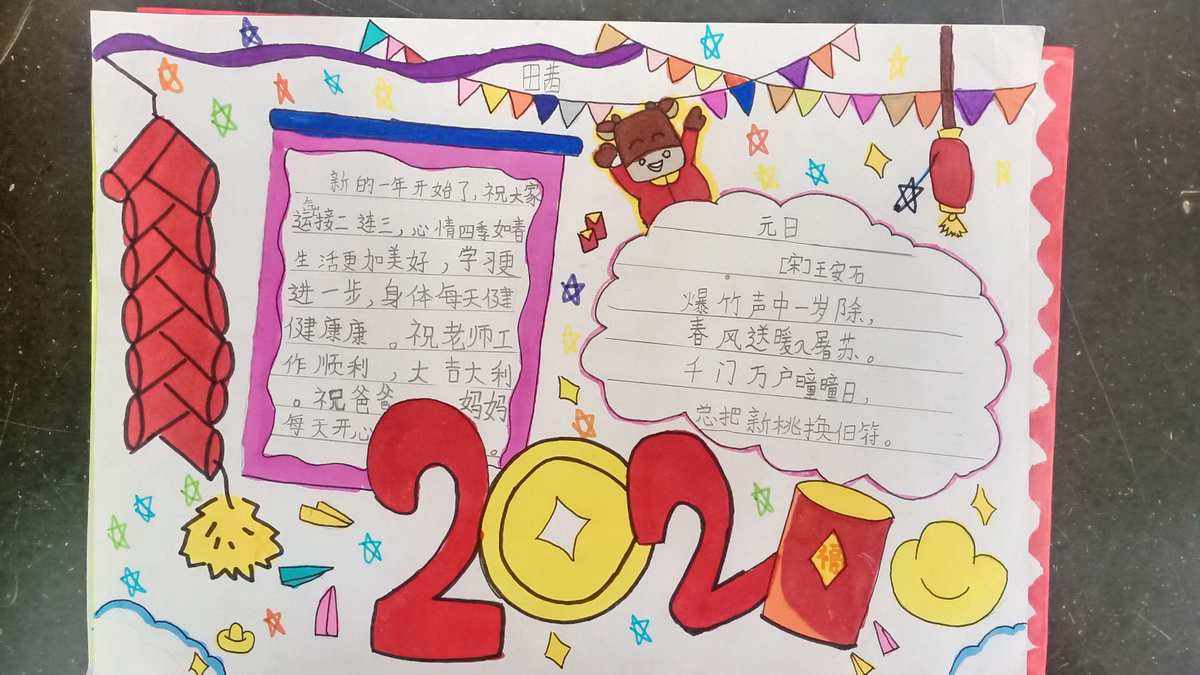 田茜
新的一年开始了,祝大家
运气接二连三,心情四季如春
生活更加美好,学习更
进一步,身体每天健
健康康。祝老师工
作顺利,大吉大利
。祝爸爸 妈妈
每天开心。
元日
[宋]王安石
爆竹声中一岁除,
春风送暖入屠苏。
千门万户曈曈日,
总把新桃换旧符。
2021
福